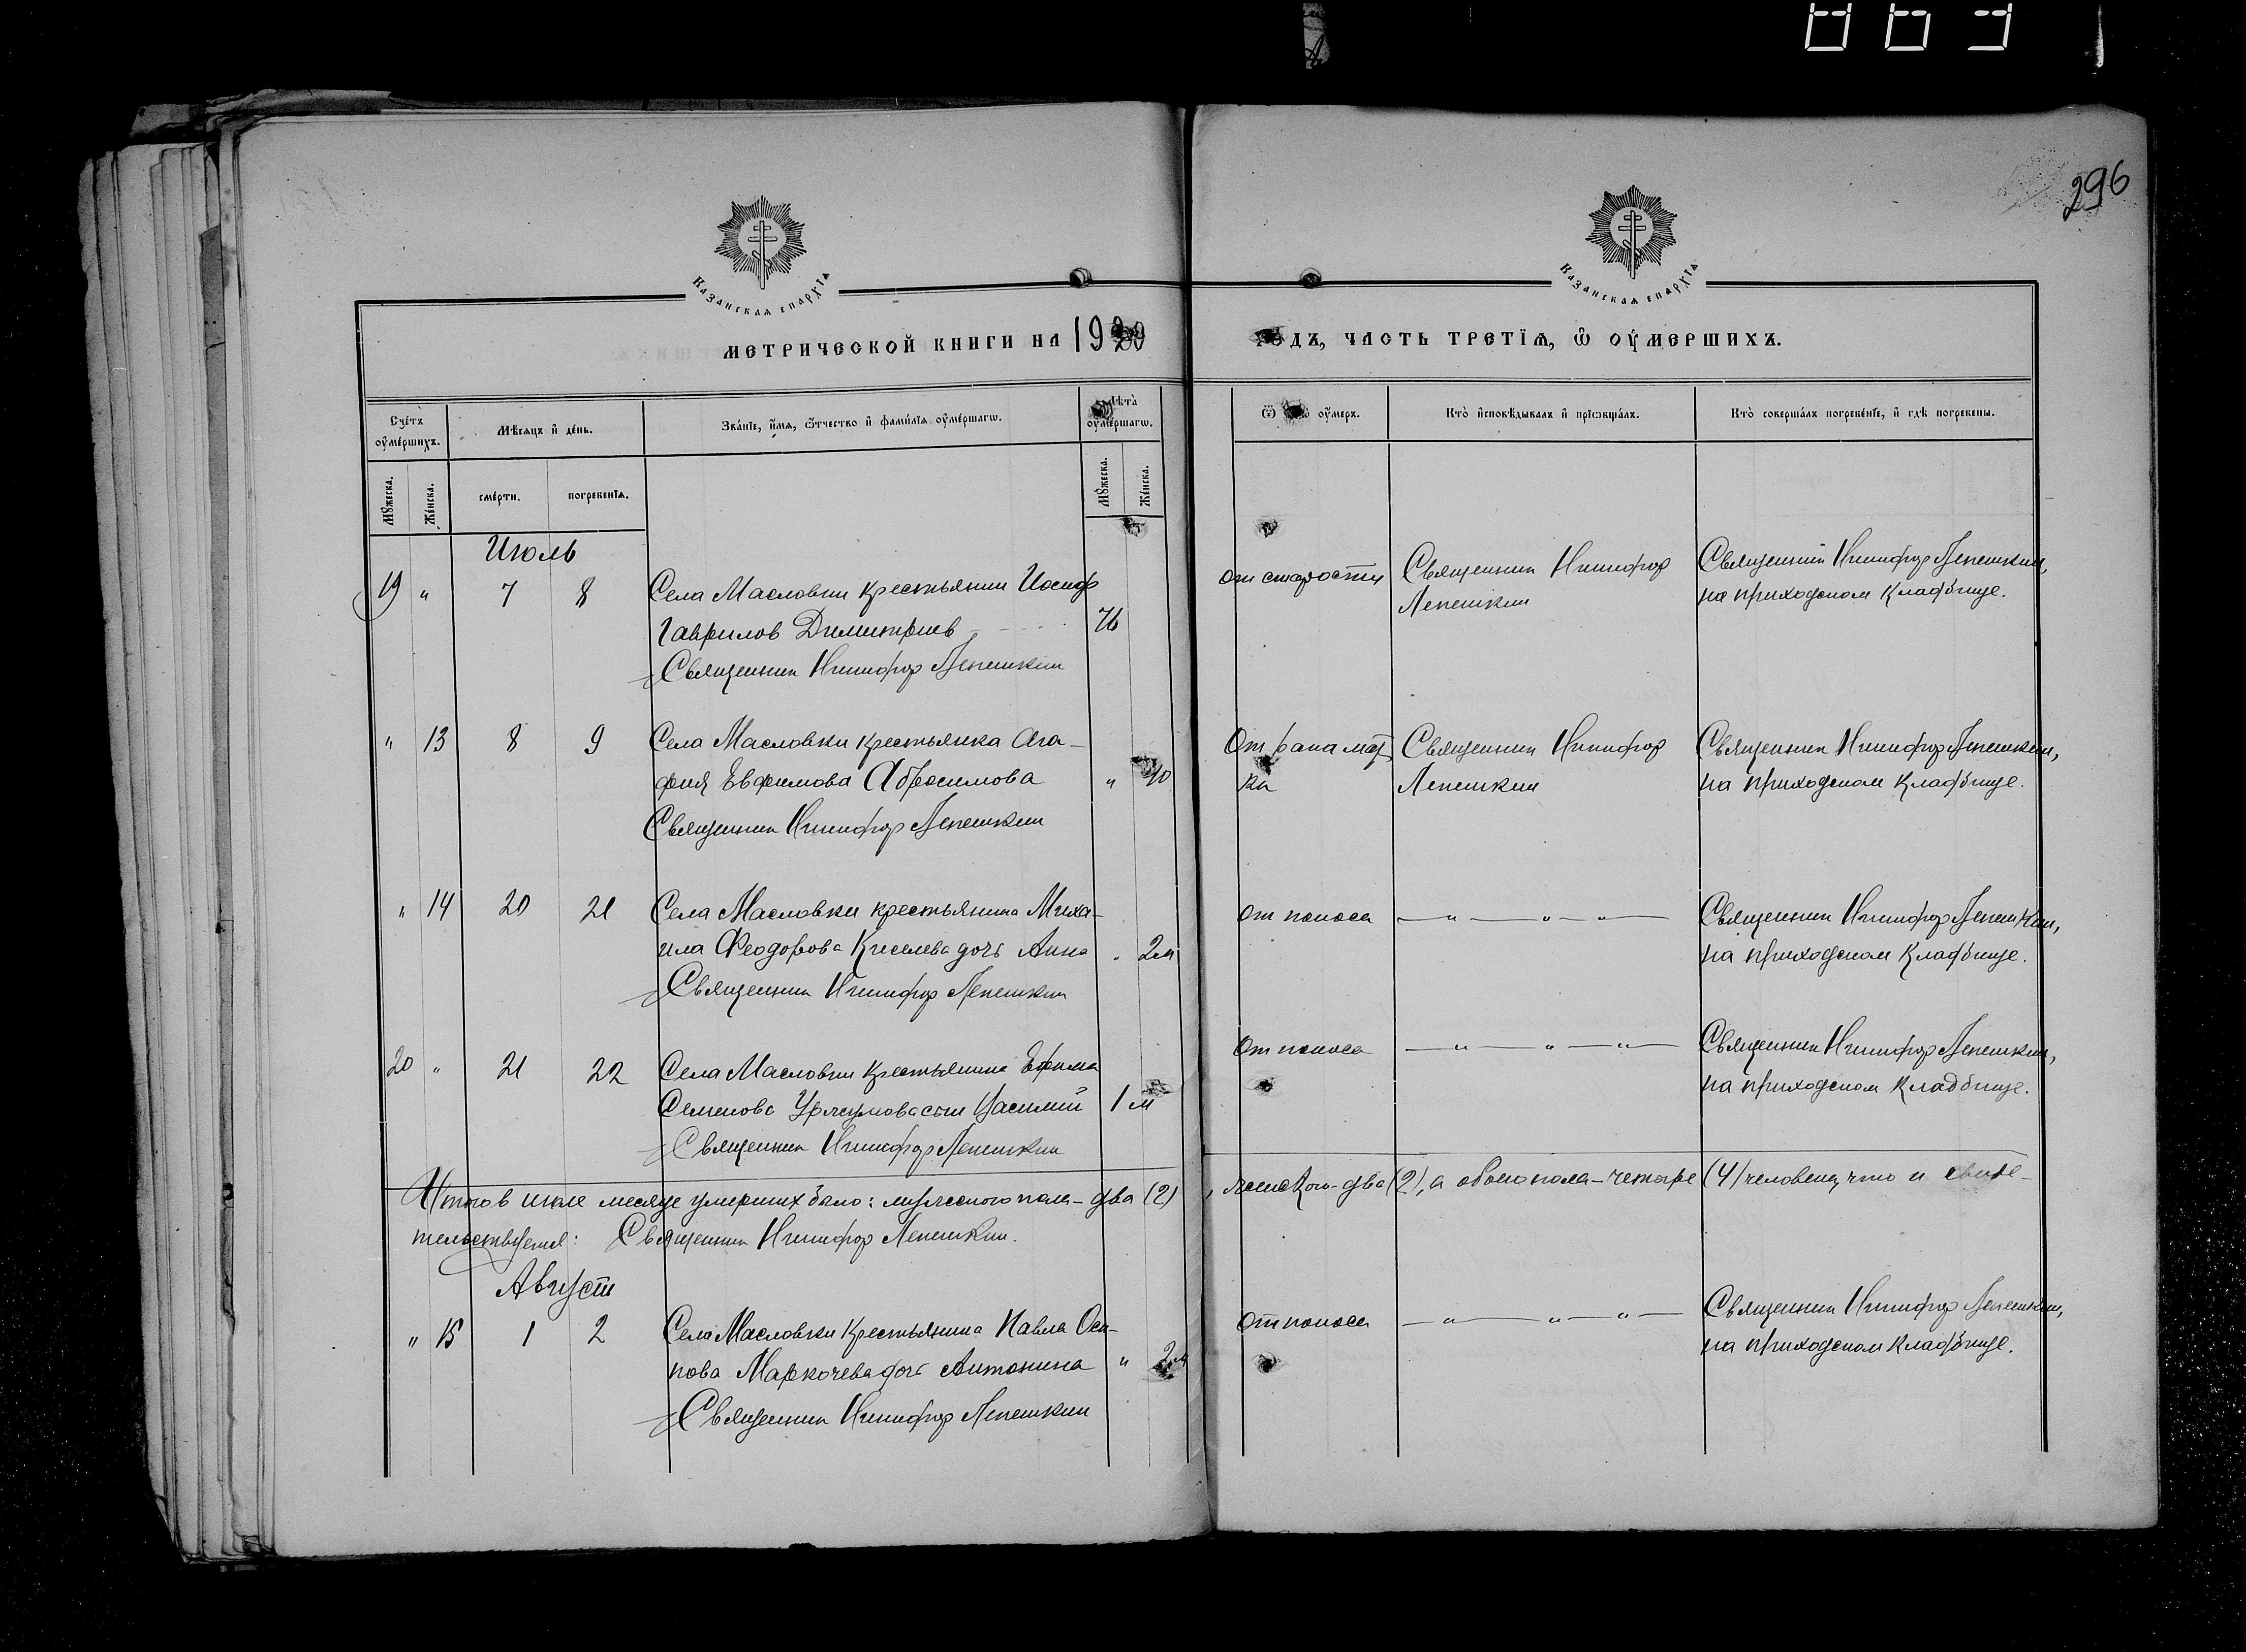 296
Казанскаѧ епархїѧ
Казанскаѧ епархїѧ
МЕТРИЧЕСКОЙ КНИГИ НА 1920
ГОДЪ, ЧАСТЬ ТРЕТІѦ, Ѽ ОУМЕРШИХЪ.
Счетъ оумершихъ.
Мѣсѧцъ и день.
Званїе, имѧ, ѿчество и фамилїѧ оумершагѡ.
Лѣта оумершагѡ.
Ѿ оумеръ.
Кто исповѣдывалъ и прїѡбщалъ.
Кто совершалъ погребенїе, и гдѣ погребены.
Мꙋжеска.
Женска.
смерти.
погребенїѧ.
Мꙋжеска.
Женска.
Июль
19 " 7 8 Села Масловки крестьянин Иосиф
Гаврилов Димитриев 76
Священник Никифор Лепешкин
от старости
Священник Никифор
Лепешкин
Священник Никифор Лепешкин,
на приходском кладбище.
" 13 8 9 Села Масловки крестьянка Ага-
фия Евфимова Абросимова " 40
Священник Никифор Лепешкин
От рака мат-
ки
Священник Никифор
Лепешкин
Священник Никифор Лепешкин,
на приходском кладбище.
" 14 20 21 Села Масловки крестьянина Миха-
ила Феодорова Киселева дочь Анна " 2м
Священник Никифор Лепешкин
От поноса
— " — " — " —
Священник Никифор Лепешкин,
на приходском кладбище.
20 " 21 22 Села Масловки крестьянина Ефима
Семенова Уржумова сын Василий 1 м
Священник Никифор Лепешкин
От поноса
— " — " — " —
Священник Никифор Лепешкин,
на приходском кладбище.
Итого в июле месяце умерших было: мужеского пола – два (2), женского – два (2), а обоего пола – четыре (4) человека, что и свиде-
тельствуем: Священник Никифор Лепешкин.
Август
" 15 1 2 Села Масловки крестьянина Павла Оси-
пова Маркочева дочь Антонина " 2м
Священник Никифор Лепешкин
От поноса
— " — " — " —
Священник Никифор Лепешкин,
на приходском кладбище.